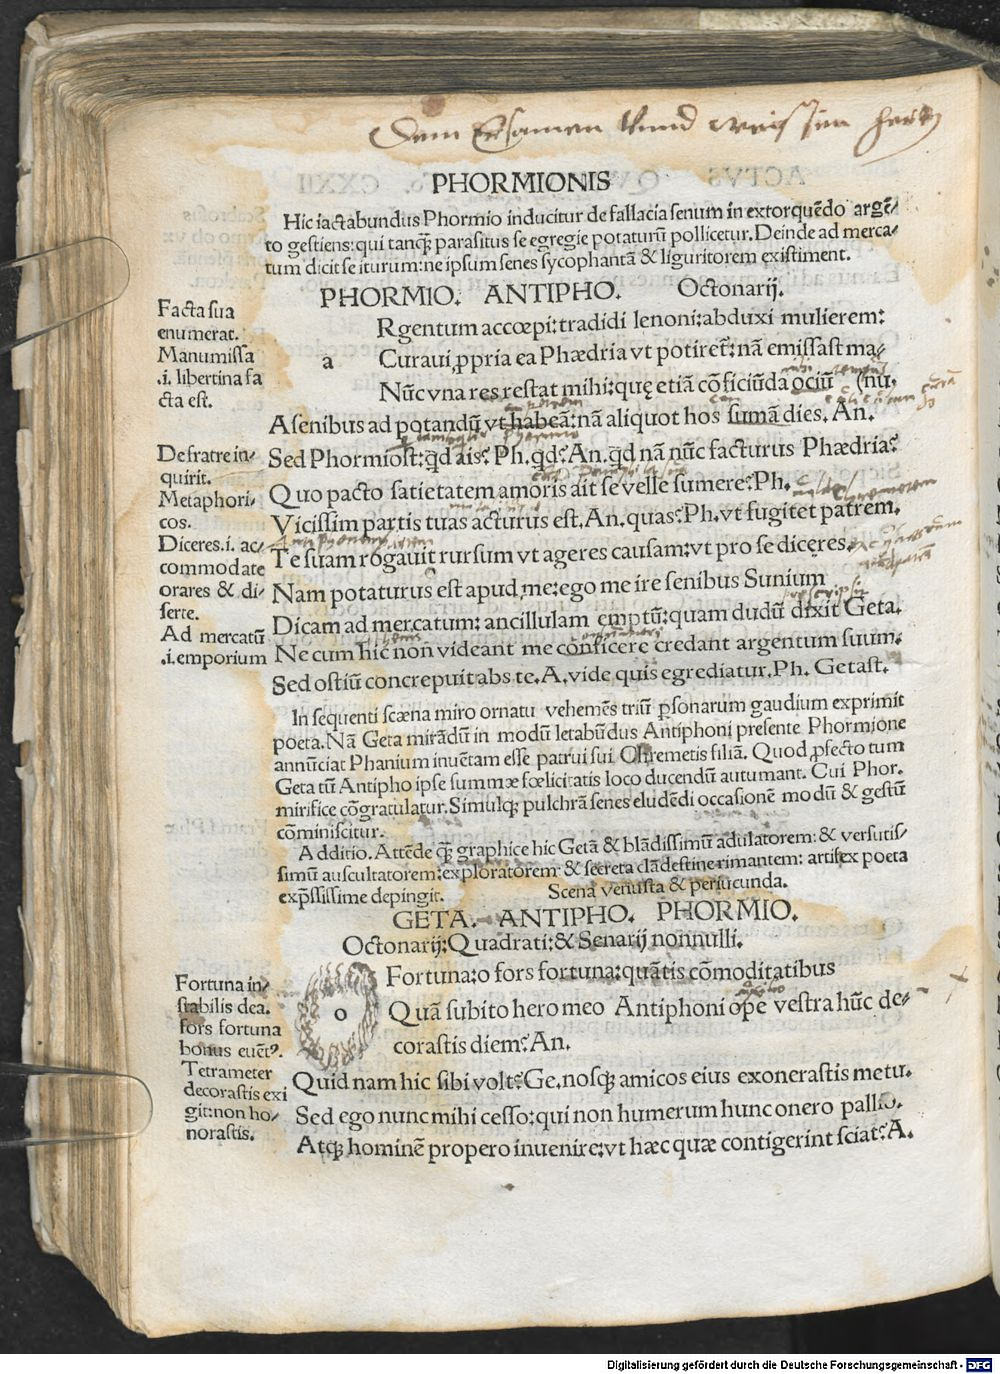 PHORMIONIS
Hic iactabundus Phormio inducitur de fallacia senum in extorquēdo argē-
to gestiens: qui tanq̃ parasitus se egregie potaturū pollicetur. Deinde ad merca-
tum dicit se iturum: ne ipsum senes sycophantā & liguritorem existiment.
PHORMIO. ANTIPHO. Octonarij.
Facta sua
enumerat.
Manumissa
.i. libertina fa
cta est.
a
Rgentum accœpi: tradidi lenoni: abduxi mulierem:
Curaui ꝓpria ea Phædria vt potiret̄: nā emissast ma-
Nūc vna res restat mihi: quę etiā cōficiūda ociū (nu.
A senibus ad potandū vt habeā: nā aliquot hos sumā dies. An.
De fratre in-
quirit.
Metaphori-
cos.
Diceres .i. ac-
commodate
orares & di-
serte.
Ad mercatū
.i. emporium
Sed Phormiost: qd ais? Ph. qd? An. qd nā nūc facturus Phædria?
Quo pacto satietatem amoris ait se velle sumere? Ph.
Vicissim partis tuas acturus est. An. quas? Ph. vt fugitet patrem.
Te suam rogauit rursum vt ageres causam: vt pro se diceres.
Nam potaturus est apud me: ego me ire senibus Sunium
Dicam ad mercatum: ancillulam emptū: quam dudū dixit Geta.
Ne cum hic non videant me conficere credant argentum suum.
Sed ostiū concrepuit abs te. A. vide quis egrediatur. Ph. Getast.
In sequenti scæna miro ornatu vehemēs triū ꝑsonarum gaudium exprimit
poeta. Nā Geta mirādū in modū letabūdus Antiphoni presente Phormione
annūciat Phanium inuētam esse patrui sui Chremetis filiā. Quod ꝓfecto tum
Geta tū Antipho ipse summæ fœlicitatis loco ducendū autumant. Cui Phor.
mirifice cōgratulatur. Simulq; pulchrā senes eludēdi occasionē modū & gestū
cōminiscitur.
Additio. Attēde q̃ graphice hic Getā & blādissimū adulatorem: & versutis-
simū auscultatorem: exploratorem & secreta clādestine rimantem: artifex poeta
expſſissime depingit. Scena venusta & periucunda.
GETA. ANTIPHO. PHORMIO.
Octonarij: Quadrati: & Senarij nonnulli.
Fortuna in-
stabilis dea.
fors fortuna
bonus euētꝰ.
Tetrameter
decorastis exi
git: non ho-
norastis.
o
Fortuna: o fors fortuna: quātis cōmoditatibus
Quā subito hero meo Antiphoni ope vestra hūc de-
corastis diem? An.
Quid nam hic sibi volt? Ge. nosq; amicos eius exonerastis metu.
Sed ego nunc mihi cesso: qui non humerum hunc onero pallio.
Atq; hominē propero inuenire: vt hæc quæ contigerint sciat? A.
Digitalisierung gefördert durch die Deutsche Forschungsgemeinschaft - DFG